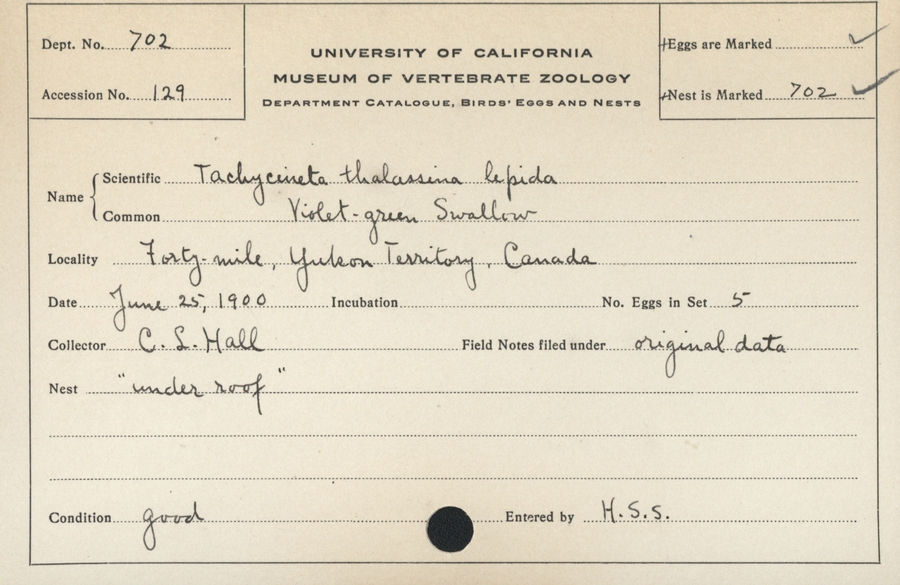 Dept. No. 702
Accession No. 129
UNIVERSITY OF CALIFORNIA
MUSEUM OF VERTEBRATE ZOOLOGY
DEPARTMENT CATALOGUE, BIRDS' EGGS AND NESTS
Eggs are Marked ✓
Nest is Marked 702 ✓
Name { Scientific Tachycineta thalassina lepida
Common Violet-green Swallow
Locality Forty-mile, Yukon Territory, Canada
Date June 25, 1900 Incubation No. Eggs in Set 5
Collector C. L. Hall Field Notes filed under original data
Nest "under roof"
Condition good Entered by H.S.S.